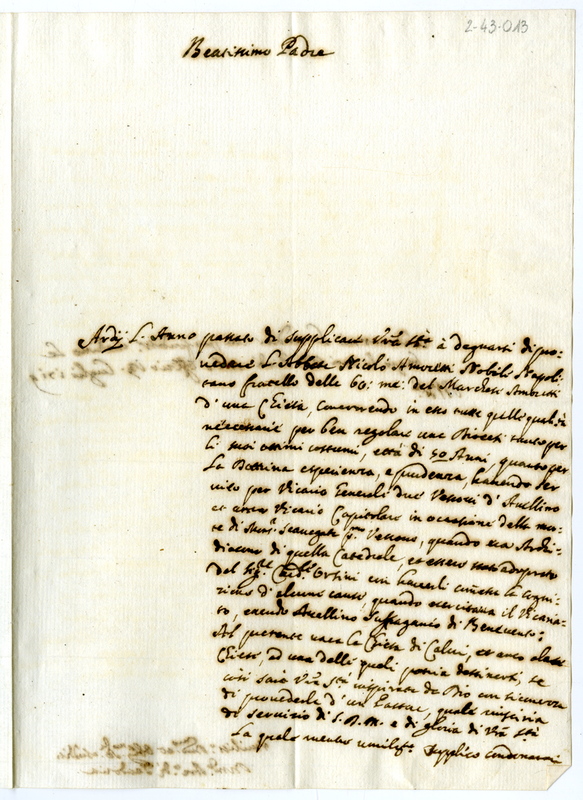 2-43-013
Beatissimo Padre
Ardij L'Anno passato di supplicare Vrã Stà à degnarsi di pro-
vedere L'Abbate Nicolò Amoretti Nobile Napoli-
tano fratello della bo: me: del Marchese Amoretti
d'una Chiesa, concorrendo in esso tutte quelle qualità
necessarie per ben regolare una Diocesi tanto per
li suoi ottimi costumi, età di 50 Anni, quanto per
La Dottrina esperienza, e prudenza, havendo ser-
vito per Vicario Generale due Vescovi d'Avellino
et anco Vicario Capitolare in occasione della mor-
te di Monsr. Scanegata pm. Vescovo, quando era Archi-
diacono di quella Catedrale, et essere stato adoprato
dal Sigre Cardle Orsini con haverli commesse la cogni-
zione d'alcune cause, quando esercitava il Vicaria-
to, essendo Avellino Suffraganeo di Benevento;
Al presente vaca la Chiesa di Calvi, et anco altre
Chiese, ad una delle quali potria destinarsi, se
così sarà Vrã Stà inspirata da Dio con sicurezza
di provederle d'un Pastore, quale riuscirà
di servizio di S. D. M. e di gloria di Vrã Stà
La quale mentre umilmte supplico condonarmi